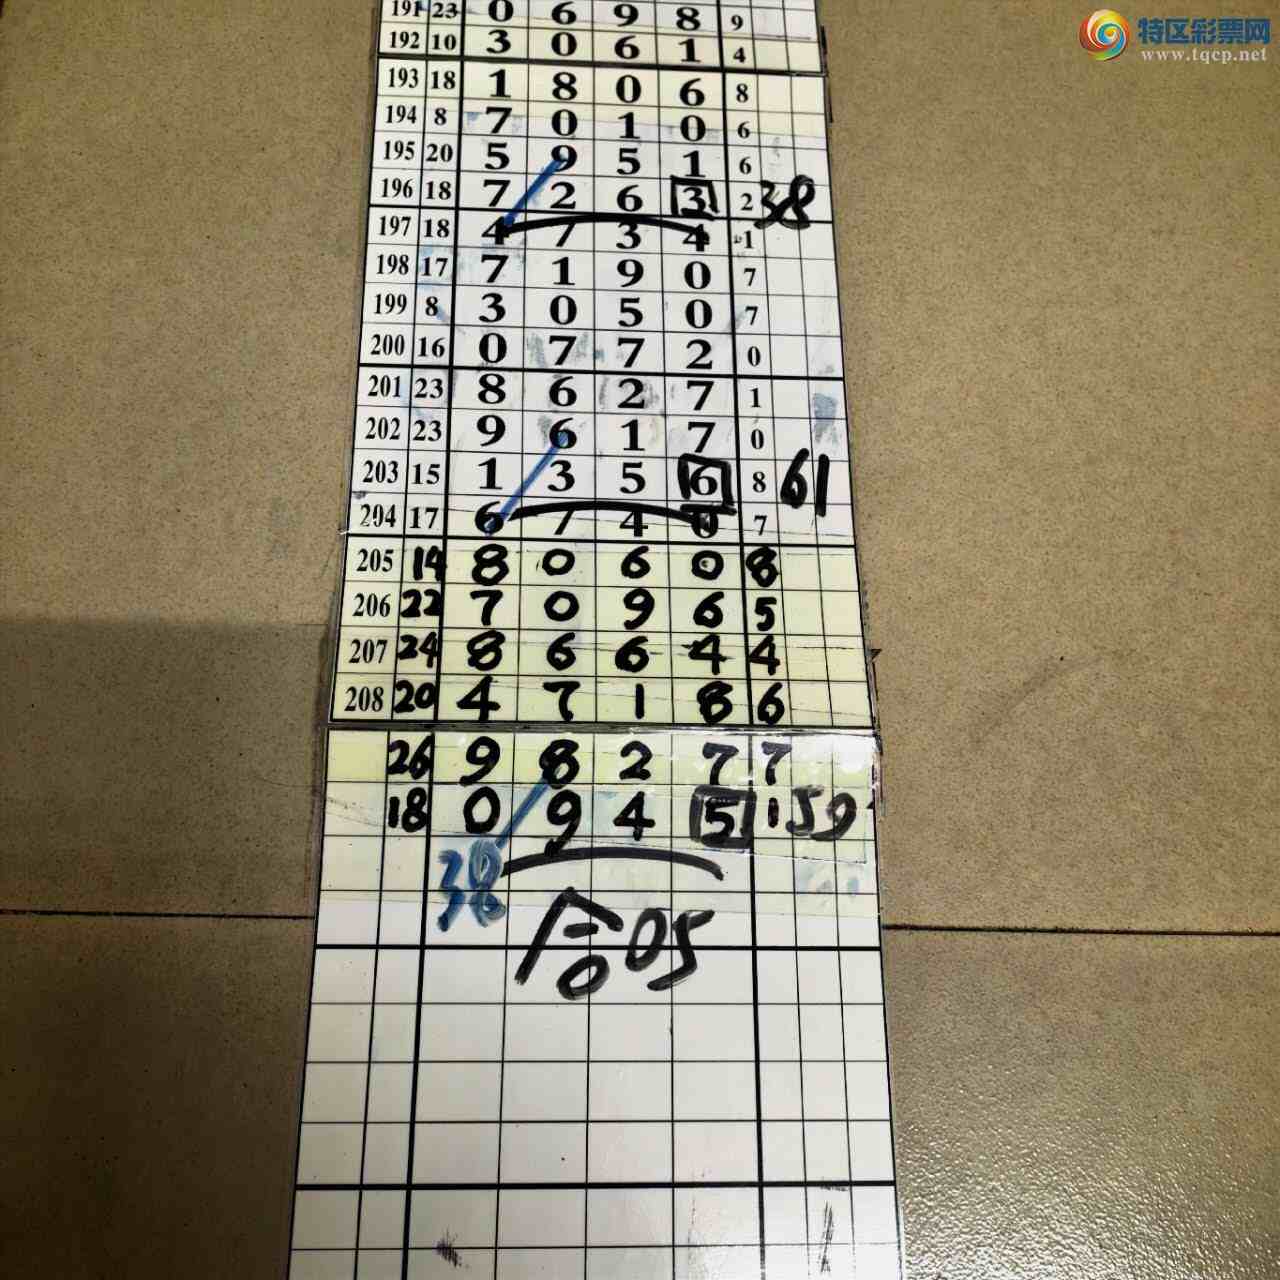 特区彩票网
www.tqcp.net
191 23 0 6 9 8 9
192 10 3 0 6 1 4
193 18 1 8 0 6 8
194 8 7 0 1 0 6
195 20 5 9 5 1 6
196 18 7 2 6 3 2 38
197 18 4 7 3 4 1
198 17 7 1 9 0 7
199 8 3 0 5 0 7
200 16 0 7 7 2 0
201 23 8 6 2 7 1
202 23 9 6 1 7 0
203 15 1 3 5 6 8 61
204 17 6 7 4 0 7
205 14 8 0 6 0 8
206 22 7 0 9 6 5
207 24 8 6 6 4 4
208 20 4 7 1 8 6
26 9 8 2 7 7
18 0 9 4 5 1 50
38
合05